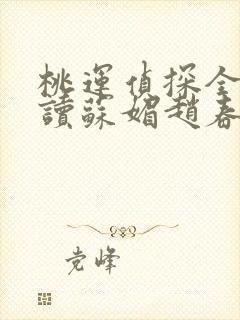 桃運偵探全
讀蘇媚趙春
党峰